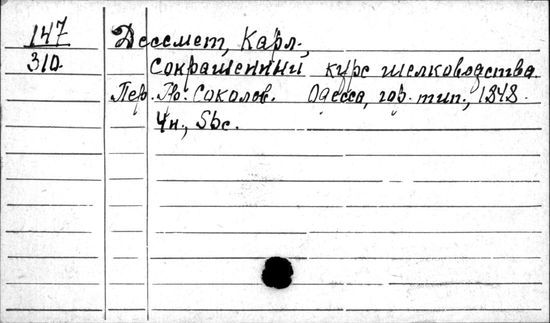 147
310
Дессмет, Карл,
Сокращенный курс шелководства.
Пер. Гр. Соколов. Одесса, гор. тип., 1848.
4н., 56с.